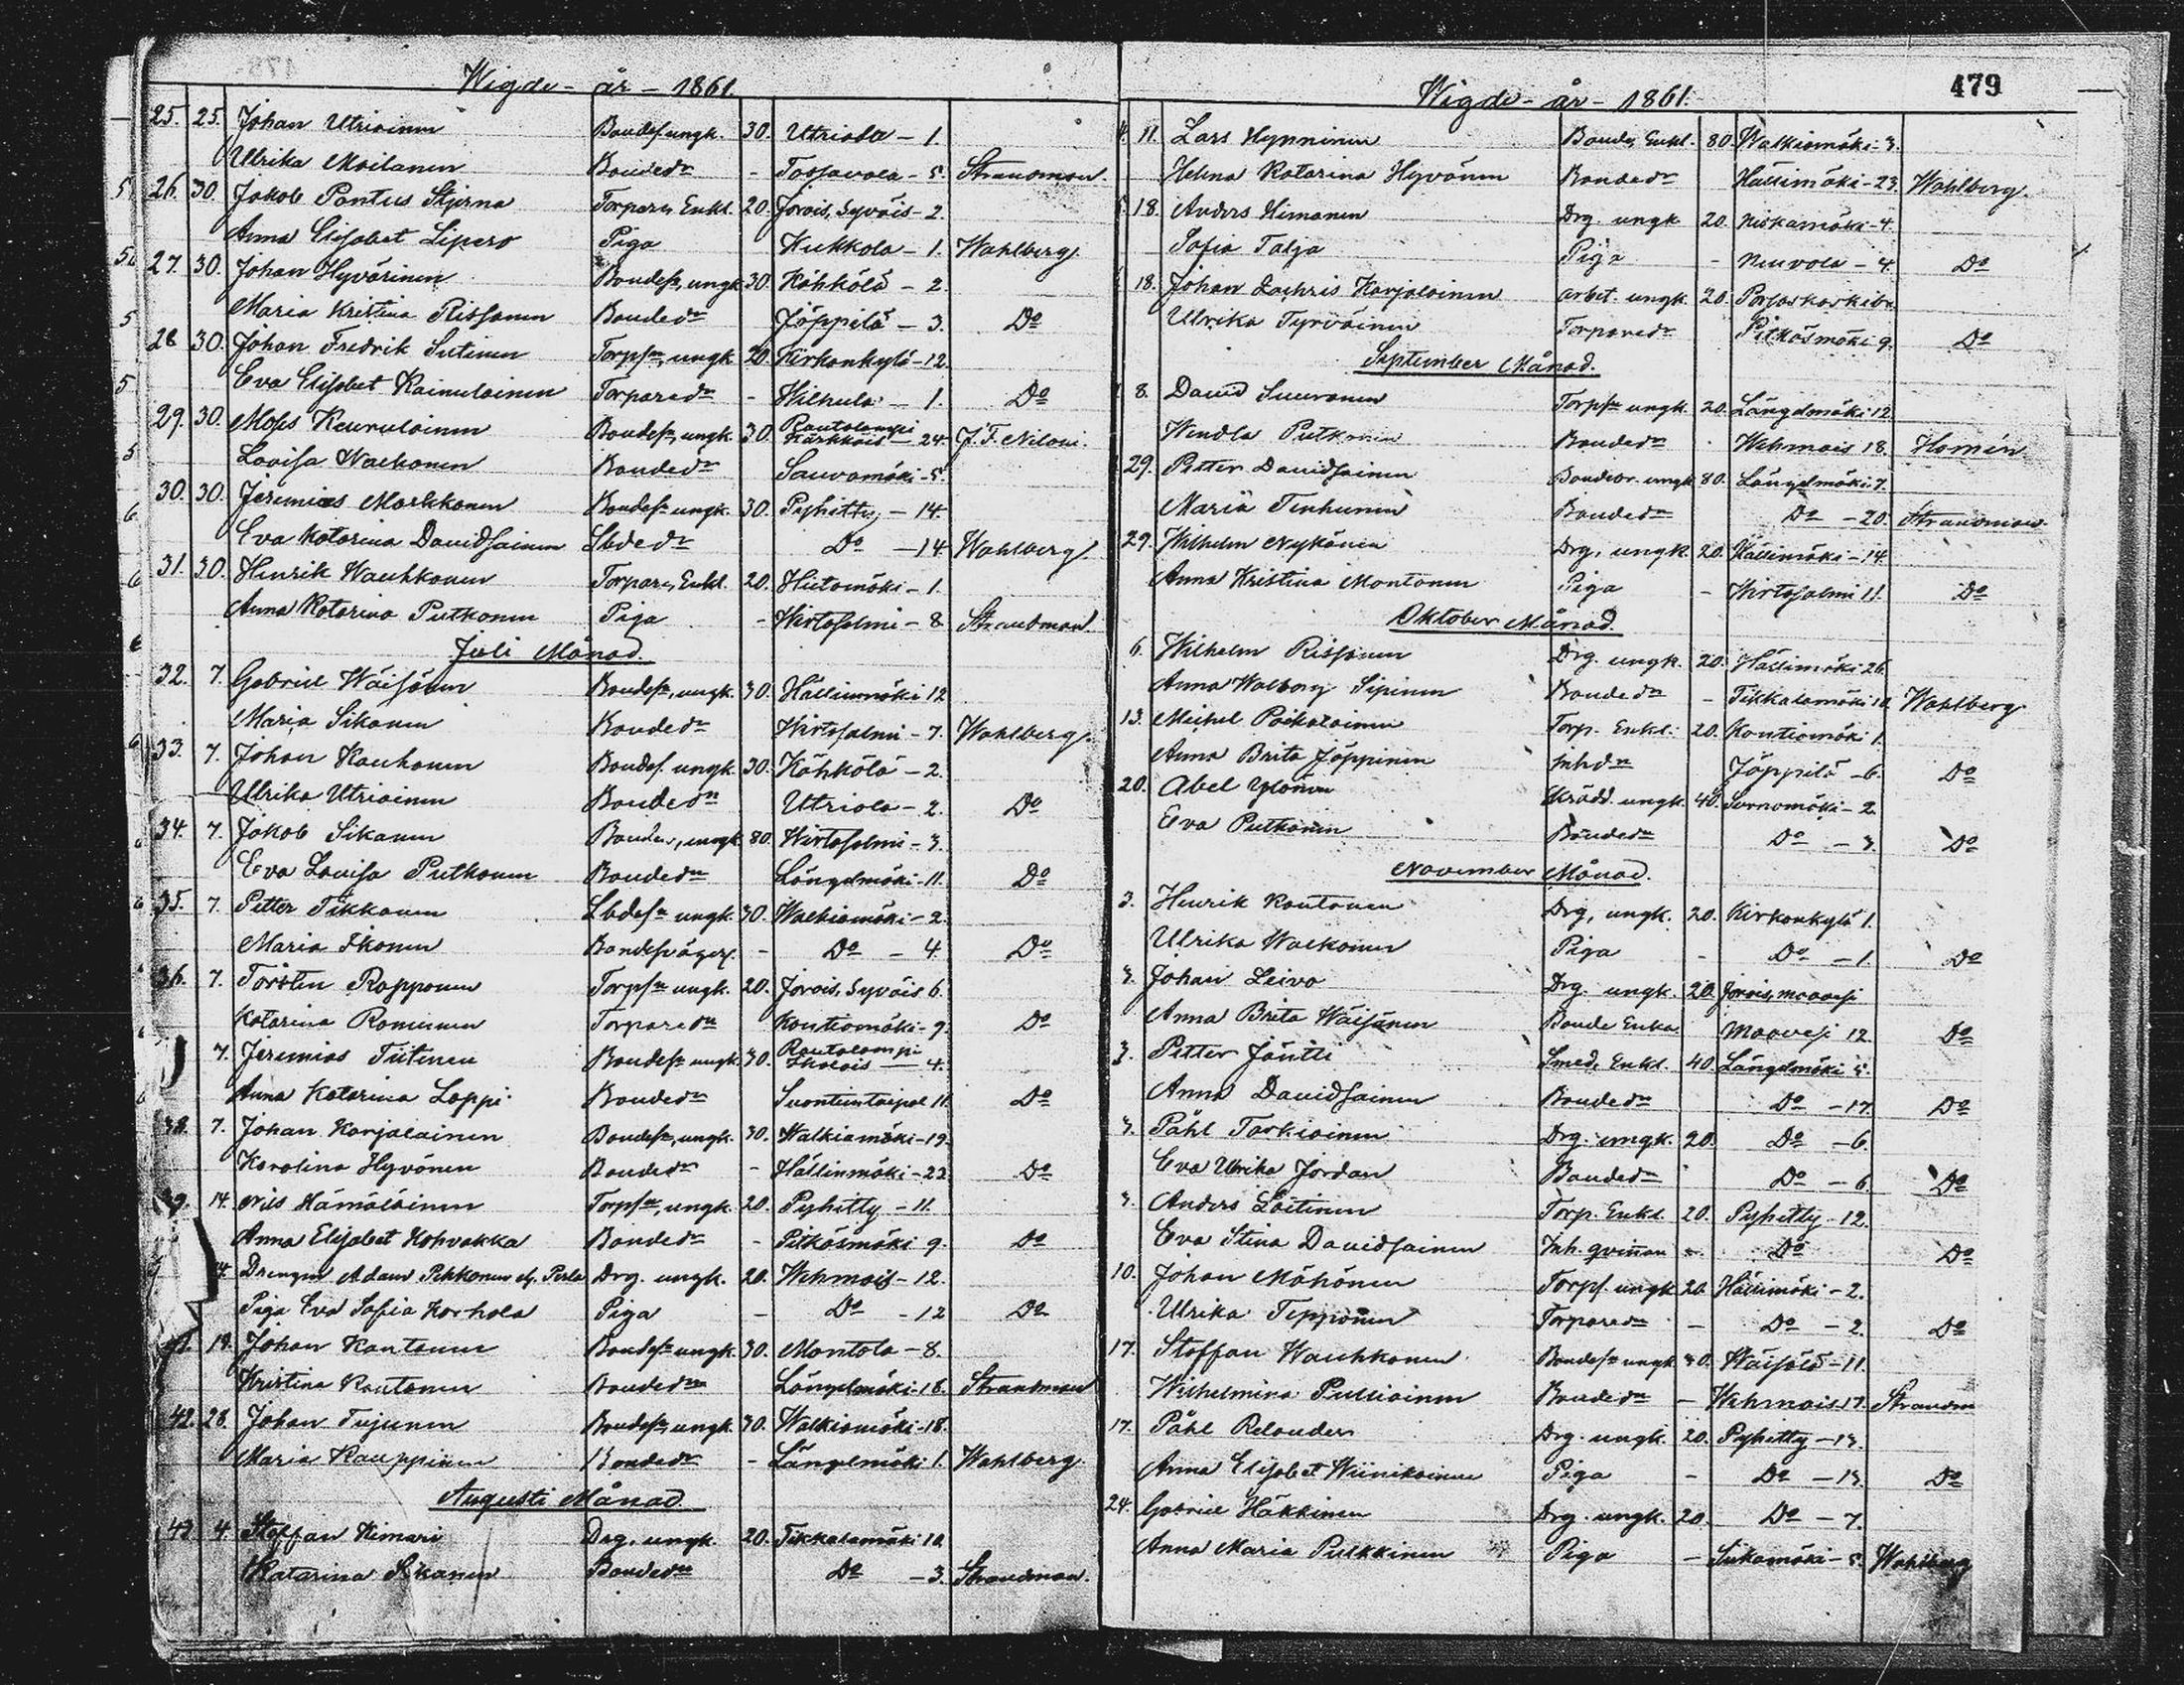 Wigde - år - 1861.
25. 25. Johan Utriainen Bondes. ungk. 30. Utriala - 1.
Ulrika Moilanen Bondedr - Tossavala - 5. Strandman.
26. 30. Jakob Pontus Stjerna Torpare, Enkl. 20. Jorois, Syväis - 2.
Anna Elisabet Lipero Piga Kukkola - 1. Wahlberg.
27. 30. Johan Hyvärinen Bondesn, ungk. 30. Kähkölä - 2.
Maria Kristina Rissanen Bondedr Jäppilä - 3. Do
28 30. Johan Fredrik Sutinen Torpsn, ungk. 20. Kirkonkylä - 12.
Eva Elisabet Kainulainen Torparedr - Hilhula - 1. Do
29. 30. Moses Keurulainen Bondesn, ungk. 30. Rautalampi Kärkkäis - 24. J. F. Niloni.
Lovisa Walkonen Bondedr Sauvomäki - 5.
30. 30. Jeremias Markkanen Bondesn ungk. 30. Pyhitty - 14.
Eva Katarina Davidsainen Lbdedr Do - 14 Wahlberg.
31. 30. Henrik Wauhkonen Torpare, Enkl. 20. Hietomäki - 1.
Anna Katarina Putkonen Piga - Wirtasalmi - 8 Strandman.
Juli Månad.
32. 7. Gabriel Wäisänen Bondesn, ungk. 30. Hällinmäki 12
Maria Sikanen Bondedr Wirtasalmi - 7. Wahlberg.
33. 7. Johan Kauhanen Bondes. ungk. 30. Kähkölä - 2.
Ulrika Utriainen Bondedn Utriala - 2. Do
34. 7. Jakob Sikanen Bonden, ungk. 80. Wirtasalmi - 3.
Eva Lovisa Putkonen Bondedn Längelmäki - 11. Do
35. 7. Petter Tikkanen Lbdesn ungk. 30. Walkiamäki - 2.
Maria Ikonen - Do - 4 Do
36. 7. Torsten Rapponen Torpsn ungk. 20. Jorois, Syväis 6.
Katarina Romunen Torparedn Kontiomäki - 9. Do
7. Jeremias Tiitinen Bondesn ungk. 30. Rautalampi - 4.
Anna Katarina Loppi Bondedn Suontientaipal 11. Do
38. 7. Johan Karjalainen Bondesn, ungk. 30. Walkiamäki - 19.
Karolina Hyvönen Bondedn - Hällinmäki - 23. Do
39. 14. Nils Hämäläinen Torpsn, ungk. 20. Pyhitty - 11.
Anna Elisabet Kohvakka Bondedn - Pitkäsmäki 9. Do
14. Drengen Adam Pekkonen Drg. ungk. 20. Wehmais - 12.
Piga Eva Sofia Korhola Piga - Do - 12 Do
41. 14. Johan Kantanen Bondesn ungk. 30. Montola - 8.
Kristina Rautanen Bondedn Längelmäki - 18. Strandman
42. 28. Johan Tujunen Bondesn ungk. 30. Walkiamäki - 18.
Maria Kauppinen Bondedn - Längelmäki 1. Wahlberg.
Augusti Månad.
43. 4. Steffan Himari Drg. ungk. 20. Tikkalamäki 10.
Katarina Sikanen Bondedn Do - 3. Strandman.
479
Wigde - år - 1861.
11. Lars Hynninen Bonde, Enkl. 80. Walkiamäki - 3.
Helena Katarina Hyvönen Bondedn Hällimäki - 23. Wahlberg.
18. Anders Himanen Drg. ungk. 20. Niskamäki - 4.
Sofia Talja Piga - Neuvola - 4. Do
18. Johan Zachris Karjalainen Arbet. ungk. 20. Porsaskoski
Ulrika Tyrväinen Torparedn Pitkäsmäki 9. Do
September Månad.
8. David Suuronen Torpsn ungk. 20. Längelmäki 12.
Wendla Putkonen Bondedn Wehmais 18. Homén
29. Petter Davidsainen Bondebr. ungk. 80. Längelmäki 7.
Maria Tenhunen Bondedn Do - 20. Strandman.
29. Wilhelm Nykänen Drg. ungk. 20. Hällimäki - 14.
Anna Kristina Montonen Piga - Wirtasalmi 11. Do
Oktober Månad.
6. Wilhelm Rissanen Drg. ungk. 20. Hällimäki 26.
Anna Walborg Sipinen Bondedn - Tikkalamäki 10. Wahlberg
13. Michel Poikalainen Torp. Enkl. 20. Kontiomäki 1.
Anna Brita Jäppinen Inhdn Jäppilä - 6. Do
20. Abel Ylönen Skrädd. ungk. 40. Sornomäki - 2.
Eva Putkonen Bondedn Do - 3. Do
November Månad.
3. Henrik Rautanen Drg, ungk. 20. Kirkonkylä 1.
Ulrika Walkonen Piga - Do - 1. Do
3. Johan Leivo Drg. ungk. 20. Jorois, Maavesi
Anna Brita Wäisänen Bonde Enka Maavesi 12. Do
3. Petter Jäntti Smed, Enkl. 40. Längelmäki 5.
Anna Davidsainen Bondedn Do - 17. Do
3. Påhl Tarkiainen Drg. ungk. 20. Do - 6.
Eva Ulrika Jordan Bondedn Do - 6. Do
3. Anders Laitinen Torp. Enkl. 20. Pyhitty - 12.
Eva Stina Davidsainen Inh. qvinnan - Do Do
10. Johan Mähönen Torps. ungk. 20. Hällimäki - 2.
Ulrika Tepponen Torparedn - Do - 2. Do
17. Staffan Wauhkonen Bondesn ungk. 30. Wäisälä - 11.
Wilhelmina Pulliainen Bondedn - Wehmais 17. Strandm
17. Påhl Relander Drg. ungk. 20. Pyhitty - 13.
Anna Elisabet Wiinikainen Piga - Do - 13. Do
24. Gabriel Häkkinen Drg. ungk. 20. Do - 7.
Anna Maria Pulkkinen Piga - Siikamäki - 5. Wahlberg